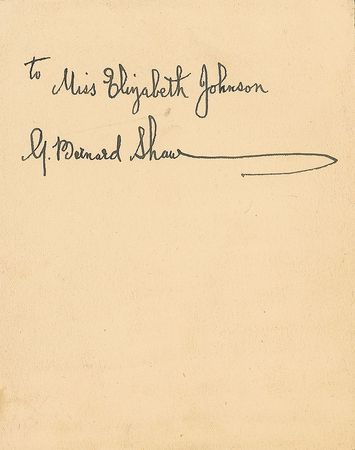 to Miss Elizabeth Johnson
G. Bernard Shaw